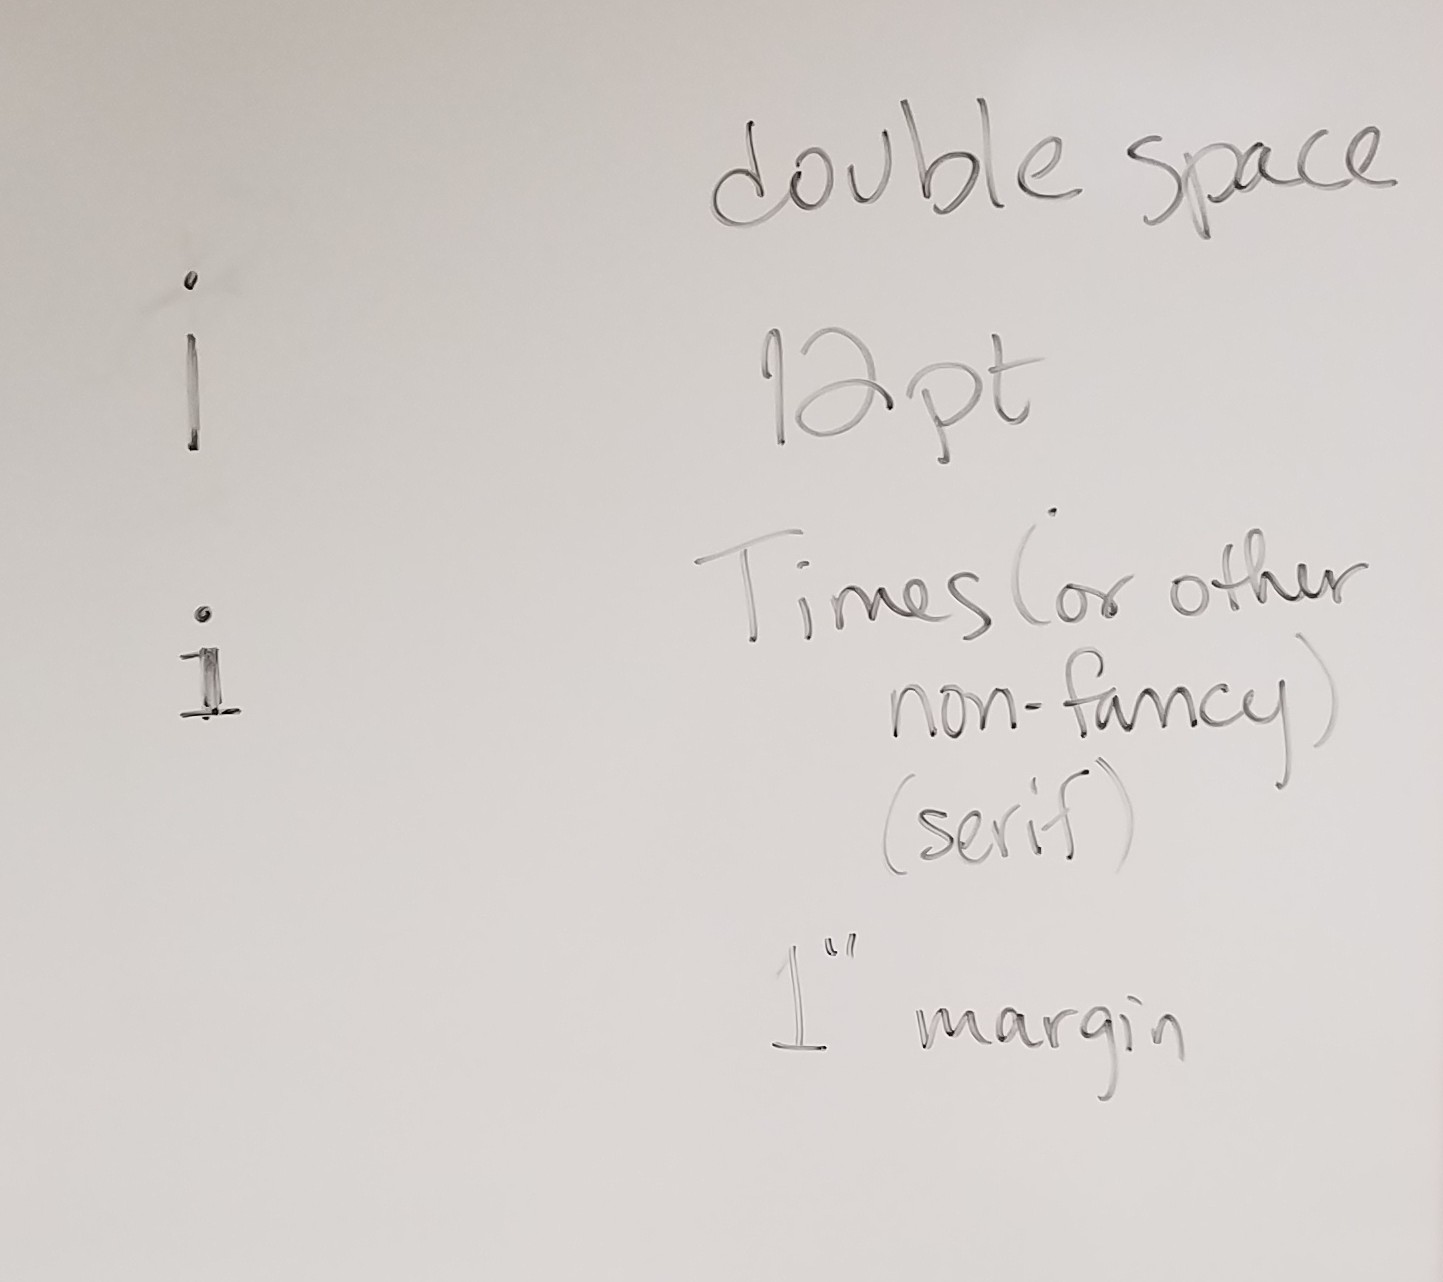 double space
i
12pt
Times (or other
i
non-fancy)
(serif)
1" margin